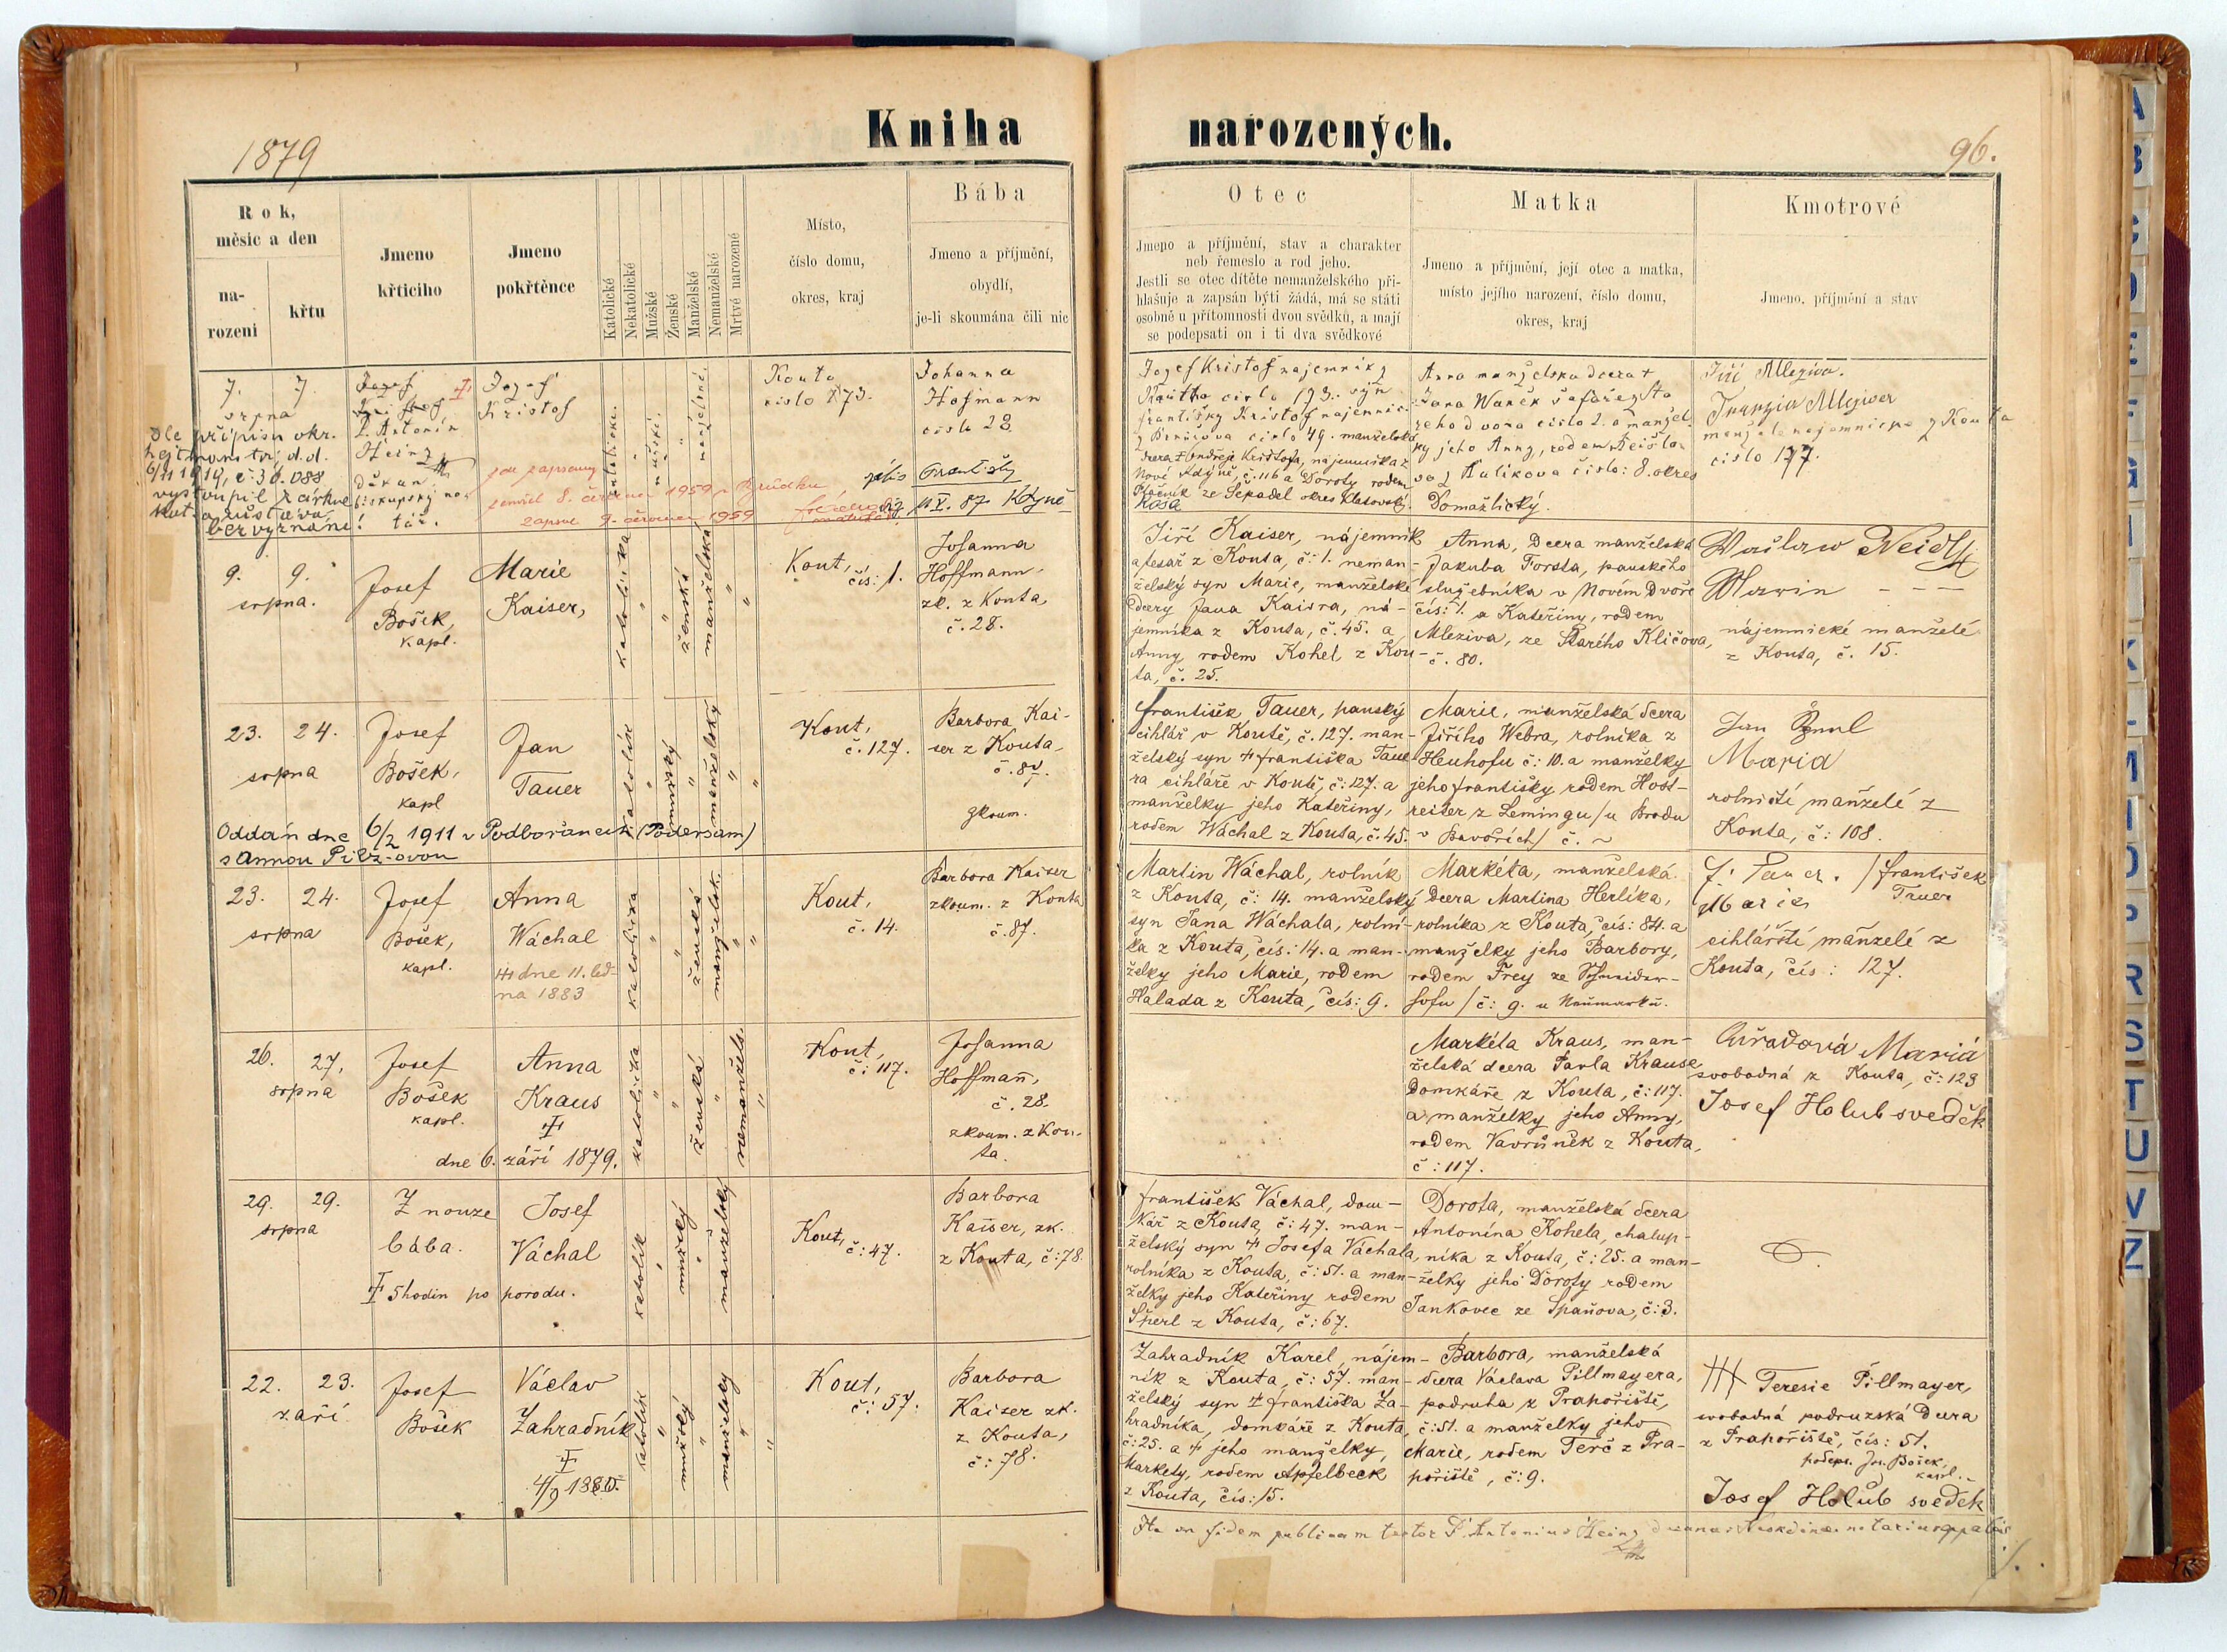 1879
Kniha
narozených.
96.
Rok,
měsíc a den
na-
rození
křtu
Jmeno
křticího
Jmeno
pokřtěnce
Katolické
Nekatolické
Mužské
Ženské
Manželské
Nemanželské
Mrtvé narozené
Místo,
číslo domu,
okres, kraj
Bába
Jmeno a příjmění,
obydlí,
je-li skoumána čili nic
Otec
Jmeno a příjmění, stav a charakter
neb řemeslo a rod jeho.
Jestli se otec dítěte nemanželského při-
hlašuje a zapsán býti žádá, má se státi
osobně u přítomnosti dvou svědků, a mají
se podepsati on i ti dva svědkové
Matka
Jmeno a příjmění, její otec a matka,
místo jejího narození, číslo domu,
okres, kraj
Kmotrové
Jmeno, příjmění a stav
7. 7.
srpna
Dle přípisu okr.
hejtmanství d.d.
vystoupil z církve
bez vyznání.
P. Antonín
Heinz
Děkan
biskupský no-
tář.
Josef
Kristof
zemřel 8. července 1959
zapsal 9. července 1959
Kouta
číslo 173.
Johanna
Hofmann
číslo 28
Josef Kristof najemník z
Koutha číslo 173. syn
Františky Kristof najemnice
číslo 49. manželské
dcera † Ondřeje Kristofa, nájemníka z
Nové Kdyně, č. 116 a Doroty rodem
ze Sekadel okres Klatovský.
Anna manželska dcera †
Jana Waněk šafáře
dvora číslo 2. a manžel-
ky jeho Anny, rodem
z Kulikova číslo: 8. okres
Domažlický.
Jiří Mleziva.
manžele najemnicke z Kouta
číslo 177.
9. 9.
srpna.
Josef
Bošek,
kapl.
Marie
Kaiser,
katolička
ženská
manželská
Kout,
čís: 1.
Johanna
Hoffmann,
zk. z Kouta,
č. 28.
Jiří Kaiser, nájemník
a tesař z Kouta, č: 1. neman-
želský syn Marie, manželské
dcery Jana Kaisra, ná-
jemníka z Kouta, č. 45. a
Anny, rodem Kohel z Kou-
ta, č. 25.
Anna, dcera manželská
Jakuba Forsta, panského
služebníka v Novém Dvoře
čís: 1. a Kateřiny, rodem
Mleziva, ze Starého Kličova,
č. 80.
nájemnické manželé
z Kouta, č. 15.
23. 24.
srpna
Josef
Bošek,
kapl
Jan
Tauer
katolík
mužský
manželský
Kout,
č. 127.
Barbora Kai-
ser z Kouta
zkoum.
Oddán dne 6/2 1911 v Podbořanech (Podersam)
s Annou Pilz-ovou
František Tauer, panský
cihlář v Koutě, č. 127. man-
želský syn † Františka Taue-
ra cihláře v Koutě, č: 127. a
manželky jeho Kateřiny,
rodem Wáchal z Kouta, č. 45.
Marie, manželská dcera
Jiřího Webra, rolníka z
Heuhofu č: 10. a manželky
jeho Františky rodem Host-
reiter z Lemingu /u Brodu
v Bavořích/ č. ~
Jan
Maria
rolničtí manželé z
Kouta, č: 108.
23. 24.
srpna
Josef
Bošek,
kapl.
Anna
Wáchal
dne 11. led-
na 1883
katolička
ženská
manželsk.
Kout,
č. 14.
Barbora Kaiser
zkoum. z Kouta
č. 87.
Martin Wáchal, rolník
z Kouta, č: 14. manželský
syn Jana Wáchala, rolní-
ka z Kouta, čís: 14. a man-
želky jeho Marie, rodem
Halada z Kouta, čís: 9.
Markéta, manželská
dcera Martina Herlíka,
rolníka z Kouta, čís: 84. a
manželky jeho Barbory,
rodem Frey ze Schneider-
hofu / č: 9. u Neumarku.
F. Tauer. / František
Tauer
Marie
cihlářští manželé z
Kouta, čís: 127.
26. 27.
srpna
Josef
Bošek
kapl.
Anna
Kraus
†
dne 6. září 1879.
katolička
ženská
nemanžels.
Kout,
č: 117.
Johanna
Hoffmañ,
č. 28.
zkoum. z Kou-
ta.
Markéta Kraus, man-
želská dcera Pavla Krause
domkáře z Kouta, č: 117.
a manželky jeho Anny,
rodem Vavruněk z Kouta,
č: 117.
Maria
svobodná z Kouta, č: 123
Josef Holub sveděk
29. 29.
srpna
Z nouze
bába.
Josef
Váchal
† 5 hodin po porodu.
katolík
mužský
manželský
Kout,
č: 47.
Barbora
Kaiser, zk.
z Kouta, č: 78.
František Váchal, dom-
kář z Kouta, č: 47. man-
želský syn † Josefa Váchala,
rolníka z Kouta, č: 51. a man-
želky jeho Kateřiny rodem
Šperl z Kouta, č: 67.
Dorota, manželská dcera
Antonína Kohela, chalup-
níka z Kouta, č: 25. a man-
želky jeho Doroty rodem
Jankovec ze Spaňova, č: 3.
22. 23.
září
Josef
Bošek
Václav
Zahradník
†
4/9 1880.
katolík
mužský
manželský
Kout,
č: 57.
Barbora
Kaiser zk.
z Kouta,
č: 78.
Zahradník Karel, nájem-
ník z Kouta, č: 57. man-
želský syn † Františka Za-
hradníka, domkáře z Kouta,
č: 25. a † jeho manželky,
Markety, rodem Apfelbeck
z Kouta, čís: 15.
Barbora, manželská
dcera Václava Pillmayera,
podruha z Prapořiště,
č: 51. a manželky jeho
Marie, rodem Terč z Pra-
pořiště, č: 9.
††† Teresie Pillmayer,
svobodná podruzská dcera
z Prapořiště, čís: 51.
podeps. Jos. Bošek,
kapl.
Josef Holub svedek
fidem publicam testor P. Antonius Heinz